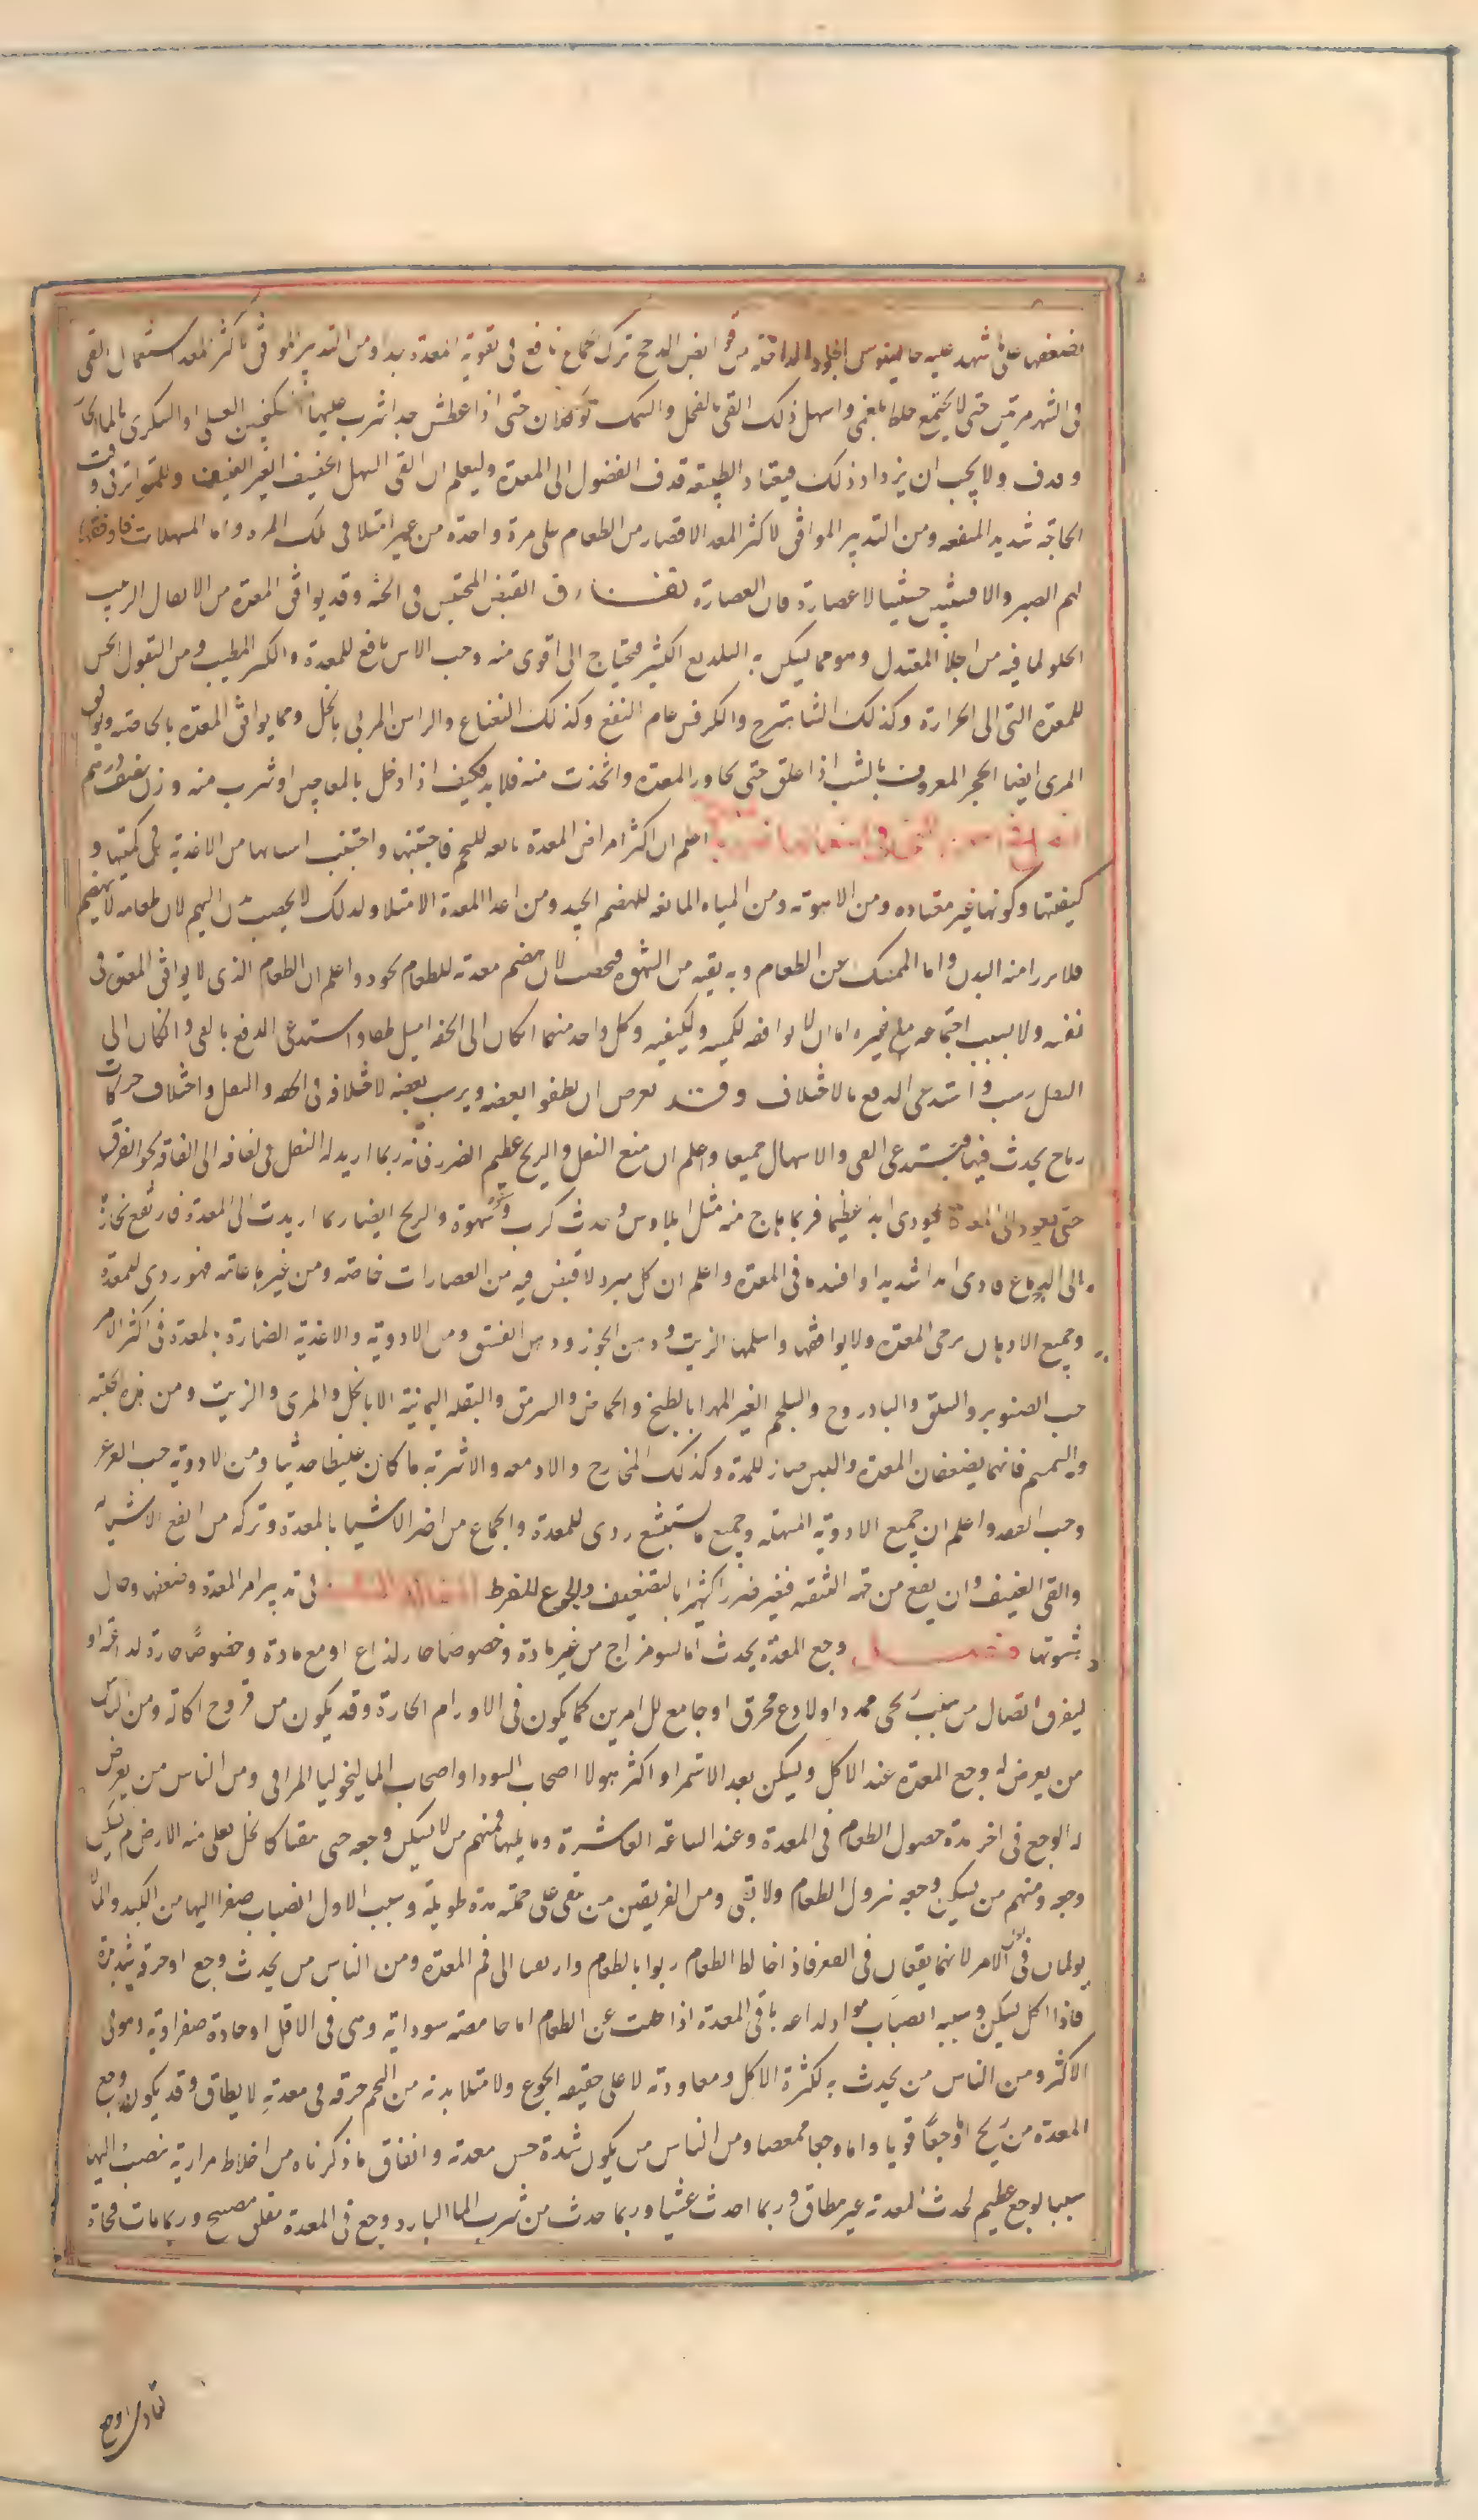 بضعفها على ما شهد عليه جالينوس الجلود الداخلة من قوانص الدجج ترك الجماع نافع فى تقوية المعدة جدا ومن التدبير الموافق لاكثر المعد استعمال القى
فى الشهر مرتين حتى لا يجتمع خلط بلغمى واسهل ذلك القى بالفجل والسمك يؤكلان حتى اذا عطش جدا شرب عليهما سكنجبين العسلى او السكرى بالما الحار
وقذف ولا يجب ان يزداد ذلك فيعتاد الطبيعه قذف الفضول الى المعدة وليعلم ان القى السهل الخفيف الغير العنيف وللمتواتر فى وقت
الحاجة شديد المنفعه ومن التدبير الموافق لاكثر المعد الاقتصار من الطعام على مرة واحدة من غير امتلا فى تلك المره واما المسهلات فاوفقها
لهم الصبر والافسنتين حشيشا لا عصارة فان العصارة تفارق القبض المحتبس فى الجثه وقد يوافق المعدة من الانقال الزبيب
الحلو لما فيه من الجلا المعتدل وهو مما يسكن به التلذيع الكثير فيحتاج الى اقوى منه وحب الاس نافع للمعدة والكبر المطيب ومن البقول الخس
للمعدة التى الى الحرارة وكذلك الشاهترج والكرفس عام النفع وكذلك النعناع والراسن المربى بالخل ومما يوافق المعدة بالخاصه ويوافق
المرى ايضا الحجر المعروف باليشب اذا علق حتى يحاور المعدة واتخذت منه قلايد فكيف اذا ادخل بالمعاجين او شرب منه وزن نصف درهم
اعلم ان اكثر امراض المعدة تابعه للتخم فاجتنبها واجتنب اسبابها من الاغذية فى كميتها و
كيفيتها وكونها غير معتاده ومن الاهوية ومن المياه المانعه للهضم الجيد ومن اعدا المعدة الامتلا ولذلك لا يخصب بدن النهم لان طعامه لا ينهضم
فلا يرزا منه البدن واما الممسك عن الطعام وبه بقيه من الشهوه فيخصب لان هضم معدته للطعام يجود واعلم ان الطعام الذى لا يوافق المعدة فى
نفسه ولا بسبب اجتماعه مع غيره اما ان لا يوافقه لكميه ولكيفيه وكل واحد منهما ان كان الى الخفه اميل طفا واستدعى الدفع بالقى وان كان الى
الثقل رسب واستدعى الدفع بالاختلاف وقد يعرض ان يطفوا بعضه ويرسب بعضه لاختلافه فى الخفه والثقل واختلاف حركات
رياح يحدث فيها فيستدعى القى والاسهال جميعا واعلم ان منع الثفل والريح عظيم الضرر فانه ربما اريد له الثفل فى لفافه الى لفافه نحو الفوق
حتى يعود الى المعدة فيوذى ايذا عظيما فربما هاج منه مثل ايلاوس وحدث كرب وسقوط شهوة والريح ايضا ربما اريدت الى المعدة فارتفع بخارها
الى الدماغ فاذى ايذا شديدا وافسد ما فى المعدة واعلم ان كل مبرد لا قبض فيه من العصارات خاصه ومن غيرها عامه فهو ردى للمعدة
وجميع الادهان يرخى المعدة ولا يوافقها واسلمها الزيت ودهن الجوز ودهن الفستق ومن الادوية والاغذية الضارة بالمعدة فى اكثر الامر
حب الصنوبر والسلق والبادروج والسلجم الغير المهرا بالطبخ والحماض والسرمق والبقله اليمانية الا بالخل والمرى والزيت ومن هذه الحلبه
والسمسم فانهما يضعفان المعدة واللبن ضار للمعدة وكذلك المخاخ والادمغه والاشربه ما كان غليظا حديثا ومن الادوية حب العرعر
وحب الفقد واعلم ان جميع الادوية المسهله وجميع ما يستبشع ردى للمعدة والجماع من اضر الاشيا بالمعدة وتركه من انفع الاشيا له
والقى العنيف وان نفع من جهة التنقيه فيضر ضررا كثيرا بالتضعيف والجوع المفرط المقالة الثانية فى تدبير امر المعدة وضعفها وحال
شهوتها فصل وجع المعدة يحدث اما لسو مزاج من غير مادة وخصوصا حار لذاع او مع مادة وخصوصا حارة لداعة او
ليفرق اتصال من سبب ريحى ممدد او لاذع محرق او جامع للامرين كما يكون فى الاورام الحارة وقد يكون من قروح اكالة ومن الناس
من يعرض له وجع المعدة عند الاكل ويسكن بعد الاستمرا واكثر هولا اصحاب السودا واصحاب الماليخوليا المراقى ومن الناس من يعرض
له الوجع فى اخر مدة حصول الطعام فى المعدة وعند الساعه العاشرة وما يليها فمنهم من لا يسكن وجعه حتى يتقيا كالخل يغلى منه الارض ثم يسكن
وجعه ومنهم من يسكن وجعه بنزول الطعام ولا يقى ومن الفريقين من يبقى على جملته مدة طويلة وسبب الاول انصباب صفرا اليها من الكبد وانما لا
يولمان فى اول الامر لانهما يقعان فى القعر فاذا خالطا الطعام ربوا بالطعام وارتفعا الى فم المعدة ومن الناس من يحدث وجع او حرقة شديدة
فاذا اكل يسكن وسببه انصباب مواد لداعه ياتى المعدة اذا خلت عن الطعام اما حامضه سوداية وهى فى الاقل او حادة صفراوية وهو فى
الاكثر ومن الناس من يحدث به لكثرة الاكل ومعاودته لا على حقيقه الجوع ولامتلا بدنه من التخم حرقه فى معدتهِ لا يطاق وقد يكون وجع
المعدة من ريح اما وجعًا قويا واما وجعا ممغصا ومن الناس من يكون شدة حس معدته واتفاق ما ذكرناه من اخلاط مرارية تنصب اليها
سببا لوجع عظيم يحدث لمعدته غير مطاق وربما احدث غشيا وربما حدث من شرب الما البارد وجع فى المعدة مقلق مصيح وربما مات فجاة